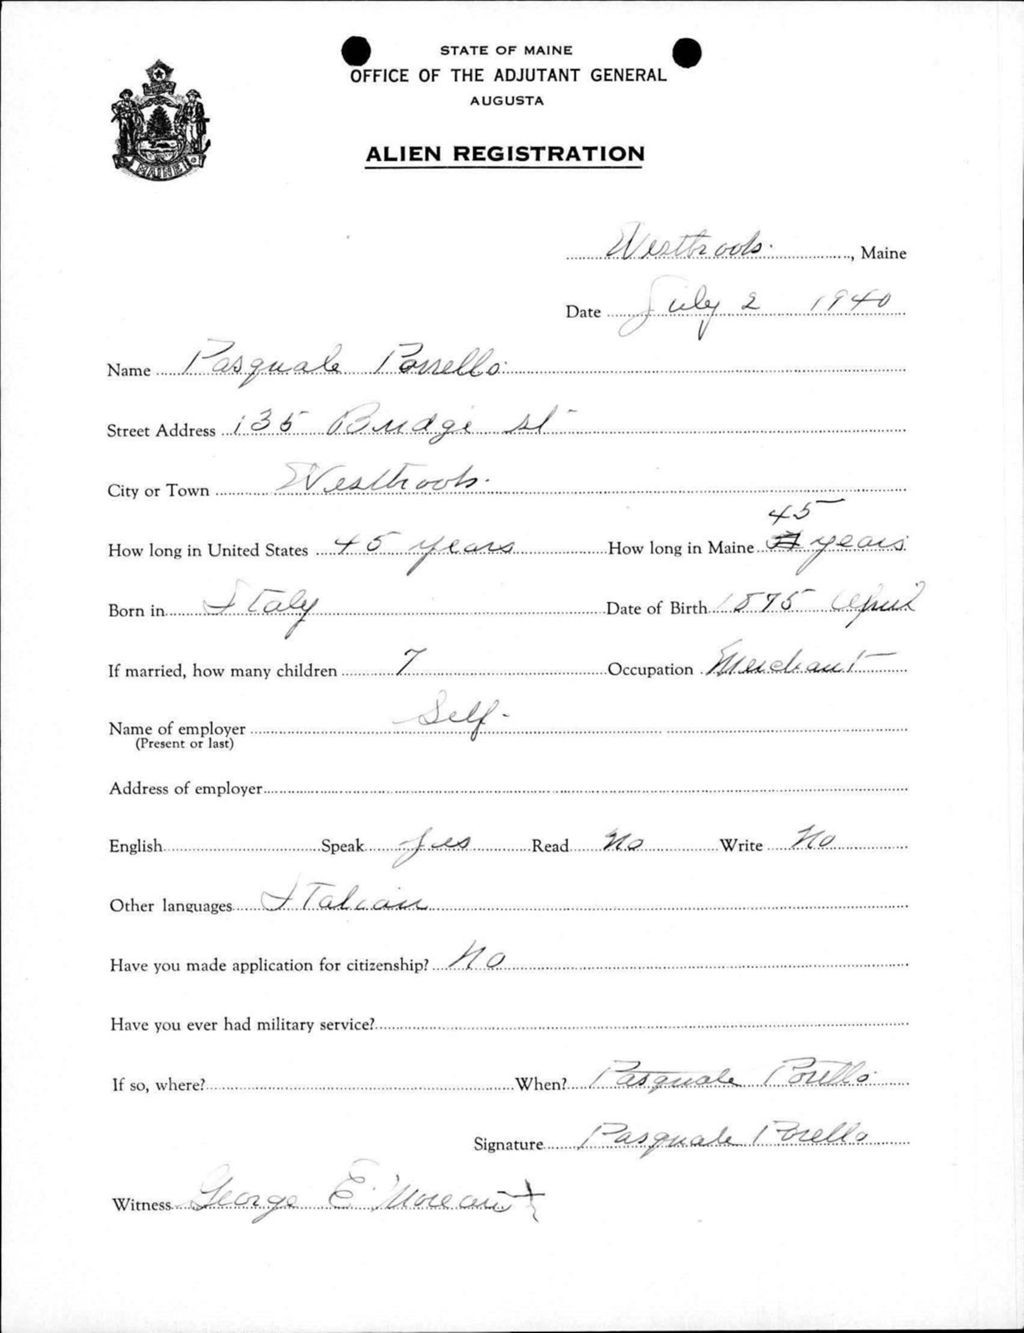 STATE OF MAINE
OFFICE OF THE ADJUTANT GENERAL
AUGUSTA
MAINE
ALIEN REGISTRATION
Westbrook, Maine
Date July 2 1940
Name Pasquale Porrello
Street Address 135 Bridge St
City or Town Westbrook
45
How long in United States 45 years How long in Maine years
Born in Italy Date of Birth 1875 April
If married, how many children 7 Occupation Merchant
Name of employer Self
(Present or last)
Address of employer
English Speak yes Read No Write No
Other languages Italian
Have you made application for citizenship? No
Have you ever had military service?
If so, where? When? Pasquale Porello
Signature Pasquale Porello
Witness George E.